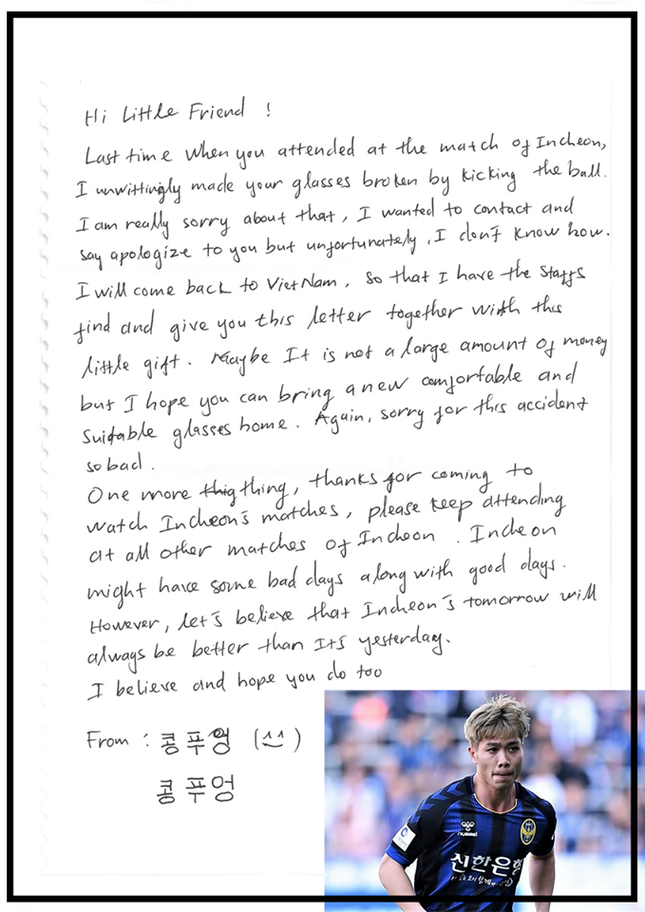 Hi Little Friend !
Last time when you attended at the match of Incheon,
I unwittingly made your glasses broken by kicking the ball.
I am really sorry about that, I wanted to contact and
say apologize to you but unfortunately, I don't know how.
I will come back to VietNam, so that I have the staffs
find and give you this letter together with this
little gift. Maybe It is not a large amount of money
but I hope you can bring a new comfortable and
suitable glasses home. Again, sorry for this accident
so bad.
One more thing, thanks for coming to
watch Incheon's matches, please keep attending
at all other matches of Incheon. Incheon
might have some bad days along with good days.
However, let's believe that Incheon's tomorrow will
always be better than its yesterday.
I believe and hope you do too
From : 콩푸엉 (^^)
콩푸엉
hummel
신한은행